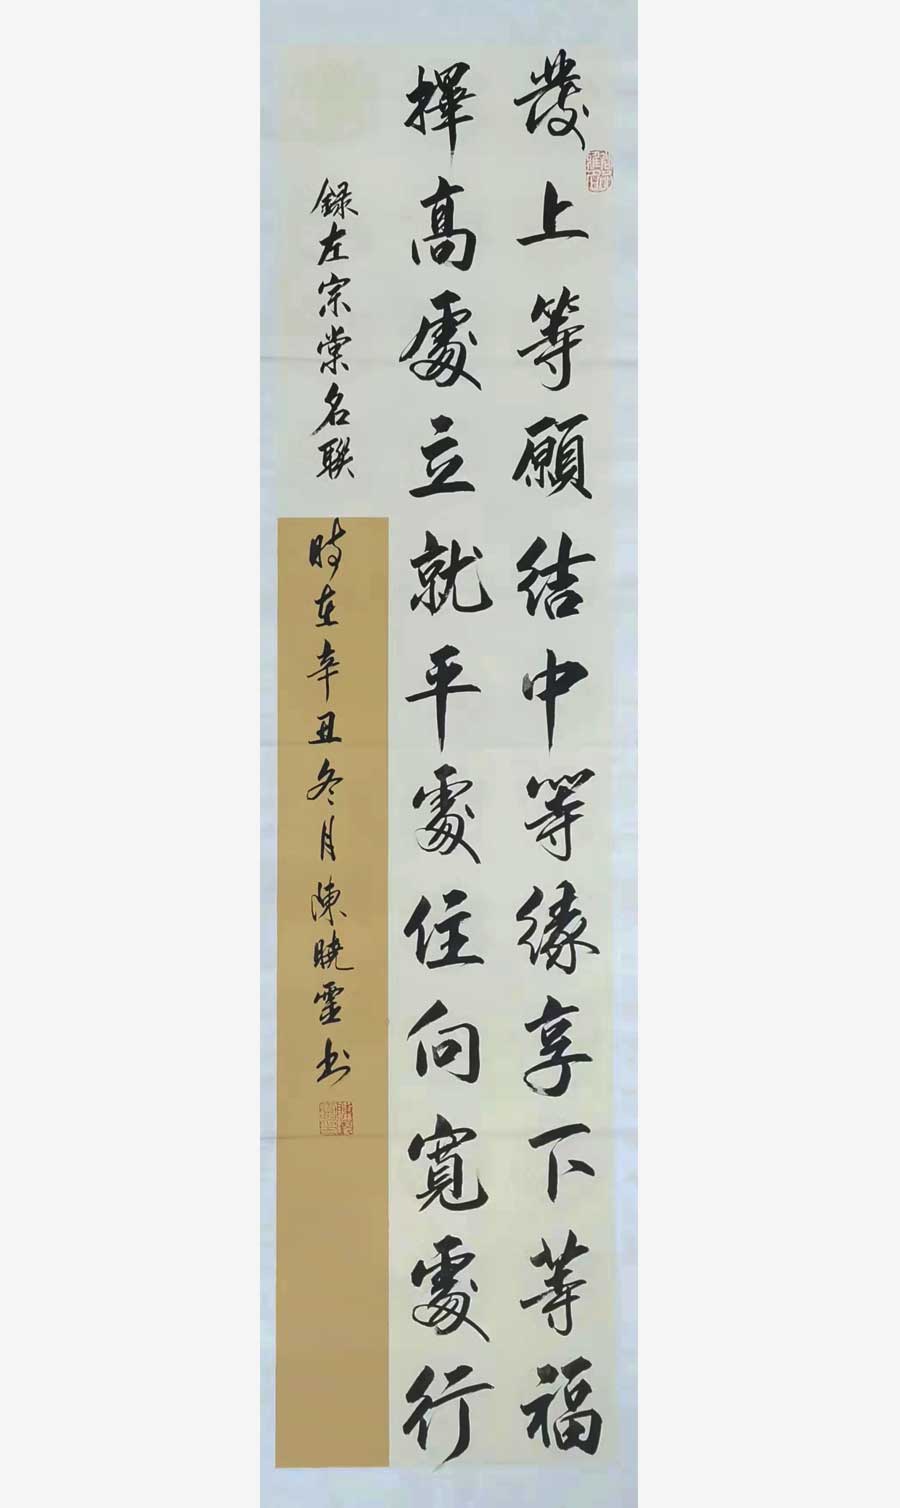 發上等願結中等緣享下等福
擇高處立就平處住向寬處行
録左宗棠名聯
時在辛丑冬月陳曉雲書